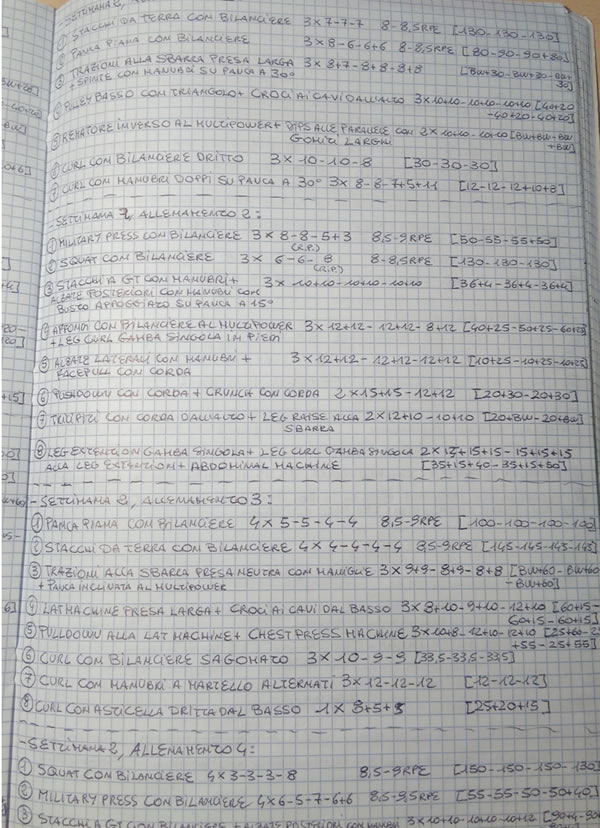 -SETTIMANA 2,
① STACCHI DA TERRA CON BILANCIERE 3×7-7-7 8-8,5RPE [130-130-130]
② PANCA PIANA CON BILANCIERE 3×8-6-6+6 8-8,5RPE [80-90-90+80]
③ TRAZIONI ALLA SBARRA PRESA LARGA 3×8+7-8+8-8+8 [BW+30-BW+30-BW+
+ SPINTE CON MANUBRI SU PANCA A 30° 30]
④ PULLEY BASSO CON TRIANGOLO + CROCI AI CAVI DALL'ALTO 3×10+10-10+10-10+10 [40+20
-40+20-40+20]
⑤ REMATORE INVERSO AL MULTIPOWER + DIPS ALLE PARALLELE CON 2×10+10-10+10 [BW+BW-BW
GOMITI LARGHI +BW]
⑥ CURL CON BILANCIERE DRITTO 3×10-10-8 [30-30-30]
⑦ CURL CON MANUBRI DOPPI SU PANCA A 30° 3×8-8-7+5+11 [12-12-12+10+8]
-SETTIMANA 2, ALLENAMENTO 2:
① MILITARY PRESS CON BILANCIERE 3×8-8-5+3 8,5-9RPE [50-55-55+50]
(R.P.)
② SQUAT CON BILANCIERE 3×6-6-8 8-8,5RPE [130-130-130]
(R.P.)
③ STACCHI A GT CON MANUBRI + 3×10+10-10+10-10+10 [36+4-36+4-36+4]
ALZATE POSTERIORI CON MANUBRI CON
BUSTO APPOGGIATO SU PANCA A 15°
④ AFFONDI CON BILANCIERE AL MULTIPOWER 3×12+12-12+12-8+12 [40+25-50+25-60+25]
+ LEG CURL GAMBA SINGOLA IN PIEDI
⑤ ALZATE LATERALI CON MANUBRI + 3×12+12-12+12-12+12 [10+25-10+25-10+25]
FACEPULL CON CORDA
⑥ PUSHDOWN CON CORDA + CRUNCH CON CORDA 2×15+15-12+12 [20+30-20+30]
⑦ TRICIPITI CON CORDA DALL'ALTO + LEG RAISE ALLA 2×12+10-10+10 [20+BW-20+BW]
SBARRA
⑧ LEG EXTENTION GAMBA SINGOLA + LEG CURL GAMBA SINGOLA 2×15+15+15-15+15+15
ALLA LEG EXTENTION + ABDOMINAL MACHINE [35+15+40-35+15+50]
-SETTIMANA 2, ALLENAMENTO 3:
① PANCA PIANA CON BILANCIERE 4×5-5-4-4 8,5-9RPE [100-100-100-100]
② STACCHI DA TERRA CON BILANCIERE 4×4-4-4-4 8,5-9RPE [145-145-145-145]
③ TRAZIONI ALLA SBARRA PRESA NEUTRA CON MANIGLIE 3×9+9-8+9-8+8 [BW+60-BW+60
+ PANCA INCLINATA AL MULTIPOWER -BW+60]
④ LAT MACHINE PRESA LARGA + CROCI AI CAVI DAL BASSO 3×8+10-9+10-12+10 [60+15-
60+15-60+15]
⑤ PULLDOWN ALLA LAT MACHINE + CHEST PRESS MACHINE 3×10+8-12+10-12+10 [25+60-25
+55-25+55]
⑥ CURL CON BILANCIERE SAGOMATO 3×10-9-9 [33,5-33,5-33,5]
⑦ CURL CON MANUBRI A MARTELLO ALTERNATI 3×12-12-12 [12-12-12]
⑧ CURL CON ASTICELLA DRITTA DAL BASSO 1×8+5+5 [25+20+15]
-SETTIMANA 2, ALLENAMENTO 4:
① SQUAT CON BILANCIERE 4×3-3-3-8 8,5-9RPE [150-150-150-130]
② MILITARY PRESS CON BILANCIERE 4×6-5-7-6+6 8,5-9,5RPE [55-55-50-50+40]
③ STACCHI A GT CON BILANCIERE + ALZATE POSTERIORI CON MANUBRI 3×10+10-10+10-10+12 [90+4-90+